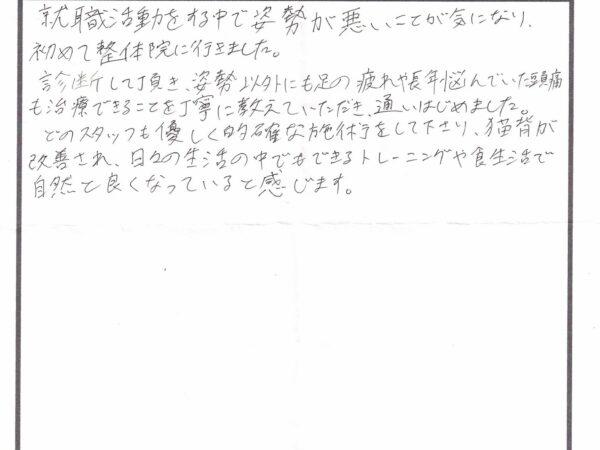 就職活動をする中で姿勢が悪いことが気になり、
初めて整体院に行きました。
診断して頂き、姿勢以外にも足の疲れや長年悩んでいた頭痛
も治療できることを丁寧に教えていただき、通いはじめました。
どのスタッフも優しく的確な施術をして下さり、猫背が
改善され、日々の生活の中でもできるトレーニングや食生活で
自然と良くなっていると感じます。